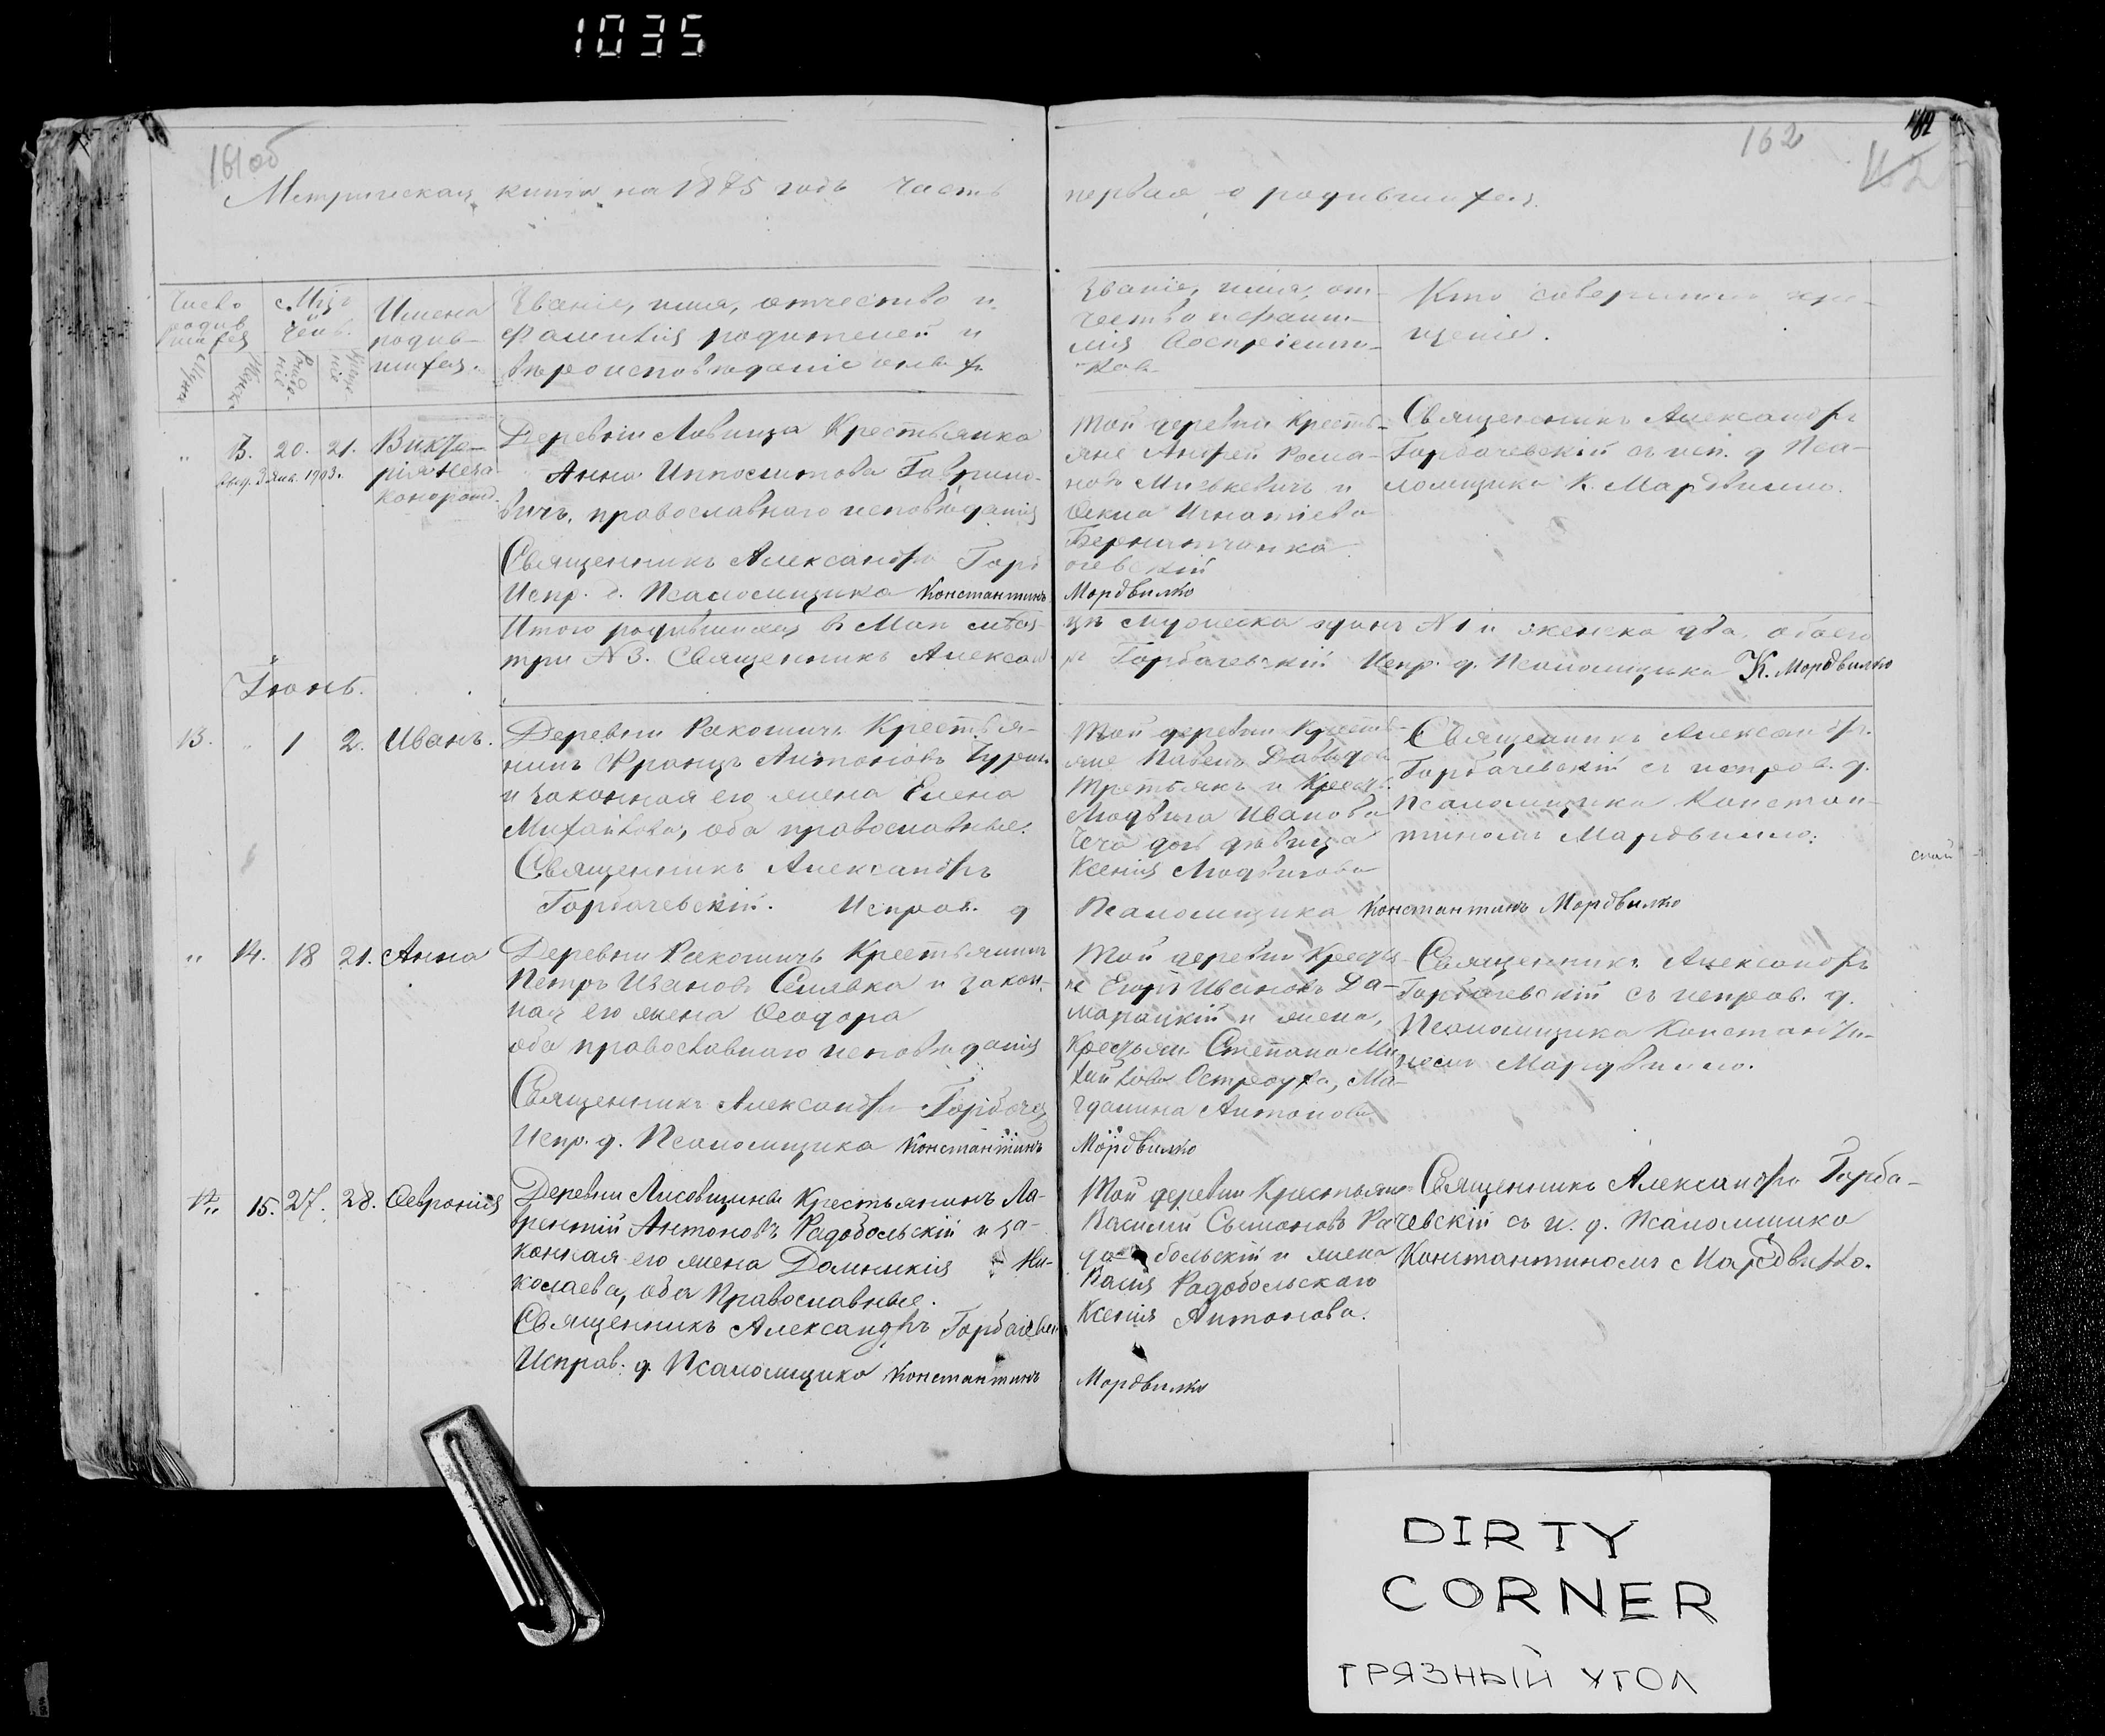 1035
161об
162
182
162
Метрическая книга на 1875 годъ часть
первая о родившихся.
Число родившихся
Мужск.
Женск.
Мѣс. и день.
Рожденіе
Крещеніе
Имена родившихся.
Званіе, имя, отчество и
фамилія родителей и
вѣроисповѣданіе ихъ
Званіе, имя, от-
чество и фами-
лія воспріемни-
ковъ
Кто совершилъ кре-
щеніе.
„ 13. 20. 21. Викто-
рія неза
конорожд.
Выд. 3 Янв. 1903 г.
Деревни Крестьянка
Анна Ипполитова Гаврило-
вичъ, православнаго исповѣданія
Священникъ Александръ Горб
Испр. д. Псаломщика Константинъ
Той деревни Кресть-
яне Андрей Рома-
новъ и
Игнатіева
чевскій
Мордвилко
Священникъ Александръ
Горбачевскій съ исп. д. Пса-
ломщика К. Мордвилко.
Итого родившихся въ Маи мѣся-
цѣ мужеска одинъ №1 и женска два, обоего
три №3. Священникъ Александ
ръ Горбачевскій Испр. д. Псаломщика К. Мордвилко
Іюнь.
13. „ 1 2. Иванъ.
Деревни Ракошичъ Крестья-
нинъ Францъ Антоновъ
и законная его жена Елена
Михайлова, оба православные.
Священникъ Александръ
Горбачевскій. Исправ. д
Той деревни Кресть-
яне Павелъ Давыдовъ
Третьякъ и Крест.
Людвига Иванова
дочь дѣвица
Ксенія Людвигова
Псаломщика Константинъ Мордвилко
Священникъ Александръ
Горбачевскій съ исправ. д.
Псаломщика Констан-
тиномъ Мордвилко.
стай
„ 14. 18 21. Анна
Деревни Ракошичъ Крестьянинъ
Петръ Ивановъ Семявка и закон-
ная его жена Ѳеодора
оба православнаго исповѣданія
Священникъ Александръ Горбачев
Испр. д. Псаломщика Константинъ
Той деревни Крестья-
не Егоръ Ивановъ
и жена,
Крестьян. Степана Ми-
хайлова Остреуха, Ма-
гдалина Антонова
Мордвилко
Священникъ Александръ
Горбачевскій съ исправ. д.
Псаломщика Константи-
номъ Мордвилко.
15. 27. 28. Ѳевронія
Деревни Лисовщины Крестьянинъ Ла-
врентій Антоновъ Радобольскій и за-
конная его жена Домникія Ни-
колаева, оба Православные.
Священникъ Александръ Горбачевск
Исправ. д. Псаломщика Константинъ
Той деревни Крестьяне
Василій Сымоновъ Ра-
добольскій и жена
Радобольскаго
Ксенія Антонова.
Мордвилко
Священникъ Александръ Горба-
чевскій съ и. д. Псаломщика
Константиномъ Мордвилко.
DIRTY
CORNER
ГРЯЗНЫЙ УГОЛ